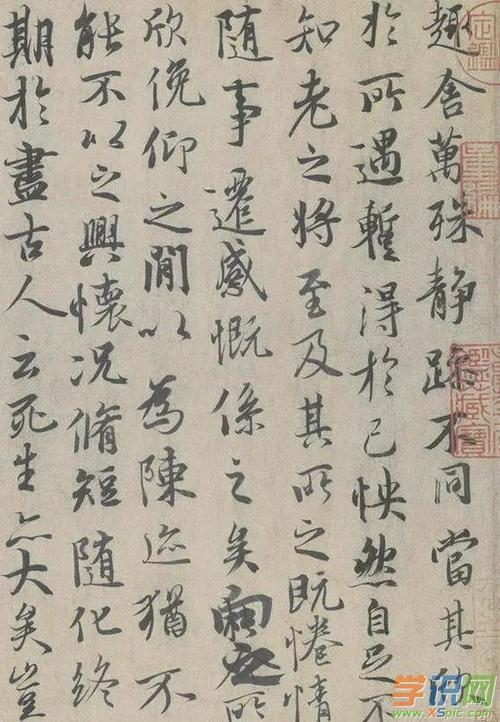 趣舍萬殊静躁不同當其欣
於所遇暫得於己怏然自足不
知老之將至及其所之既惓情
随事遷感慨係之矣向之所
欣俛仰之閒以為陳迹猶不
能不以之興懷況脩短随化終
期於盡古人云死生亦大矣豈
学识网
www.XSpic.com